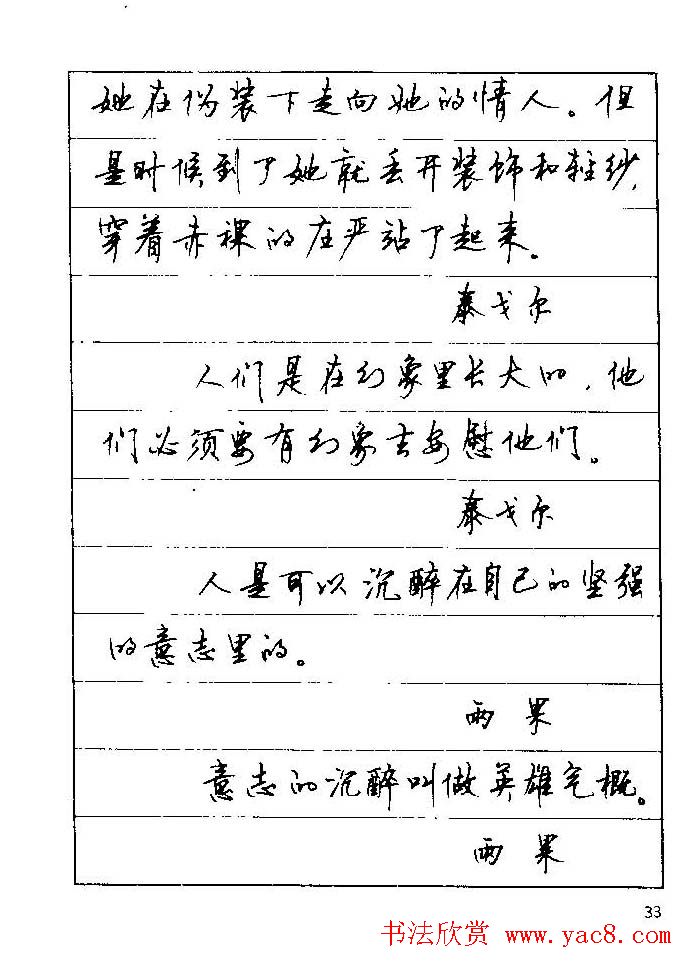 她在伪装下走向她的情人。但
是时候到了她就丢开装饰和轻纱,
穿着赤裸的庄严站了起来。
泰戈尔
人们是在幻象里长大的,他
们必须要有幻象去安慰他们。
泰戈尔
人是可以沉醉在自己的坚强
的意志里的。
雨果
意志的沉醉叫做英雄气概。
雨果
33
书法欣赏 www.yac8.com